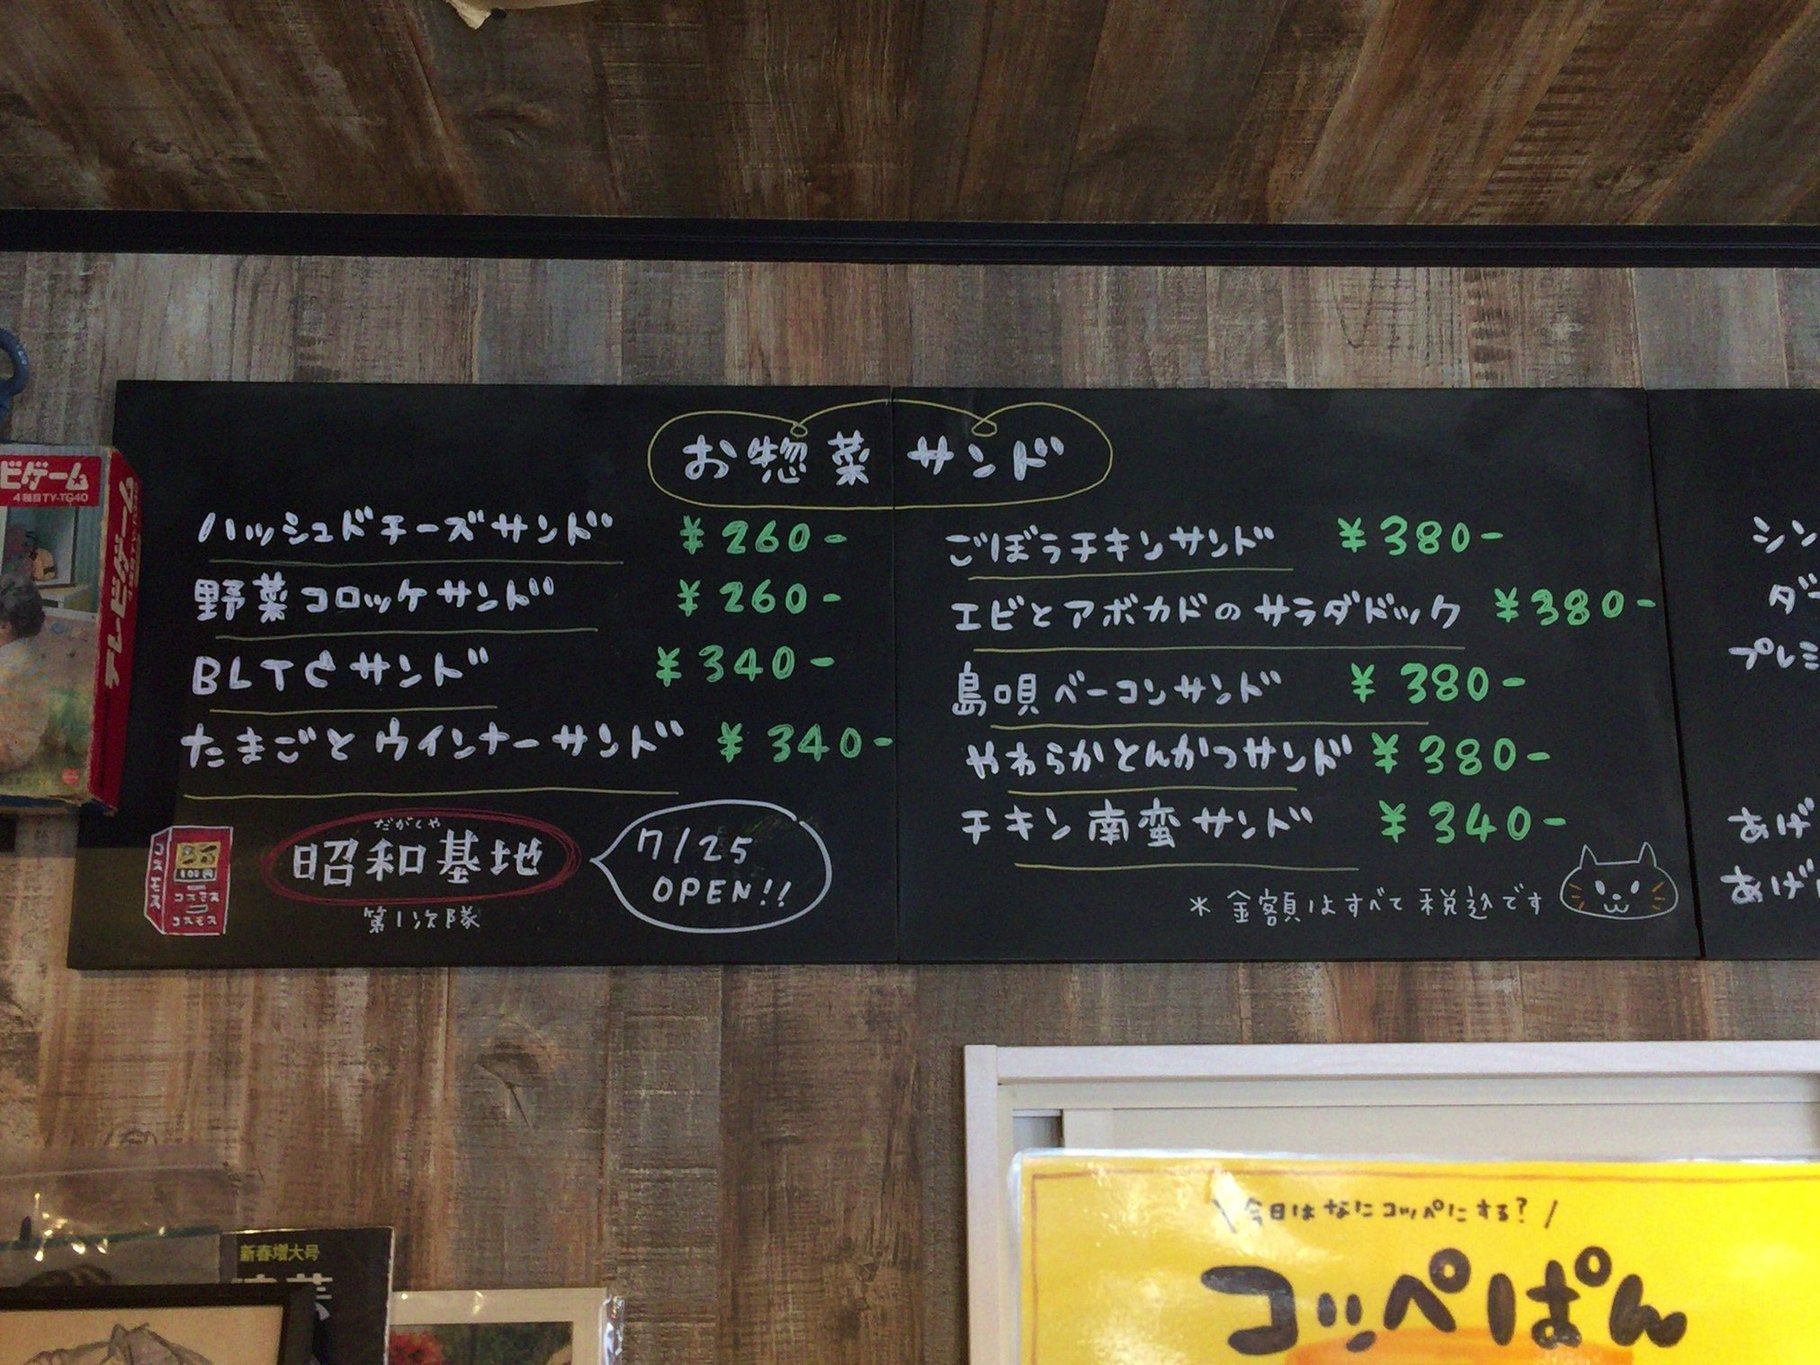 お惣菜サンド
ハッシュドチーズサンド ¥260-
野菜コロッケサンド ¥260-
BLTCサンド ¥340-
たまごとウインナーサンド ¥340-
だがしや
昭和基地
第1次隊
7/25
OPEN!!
コスモス
コスモス
コスモス
ごぼうチキンサンド ¥380-
エビとアボカドのサラダドック ¥380-
島唄ベーコンサンド ¥380-
やわらかとんかつサンド ¥380-
チキン南蛮サンド ¥340-
*金額はすべて税込です
シン
ダー
プレミ
あげ
あげ
ビゲーム
4種目TY-TG40
テレビゲーム
新春増大号
\今日はなにコッペにする?/
コッペぱん